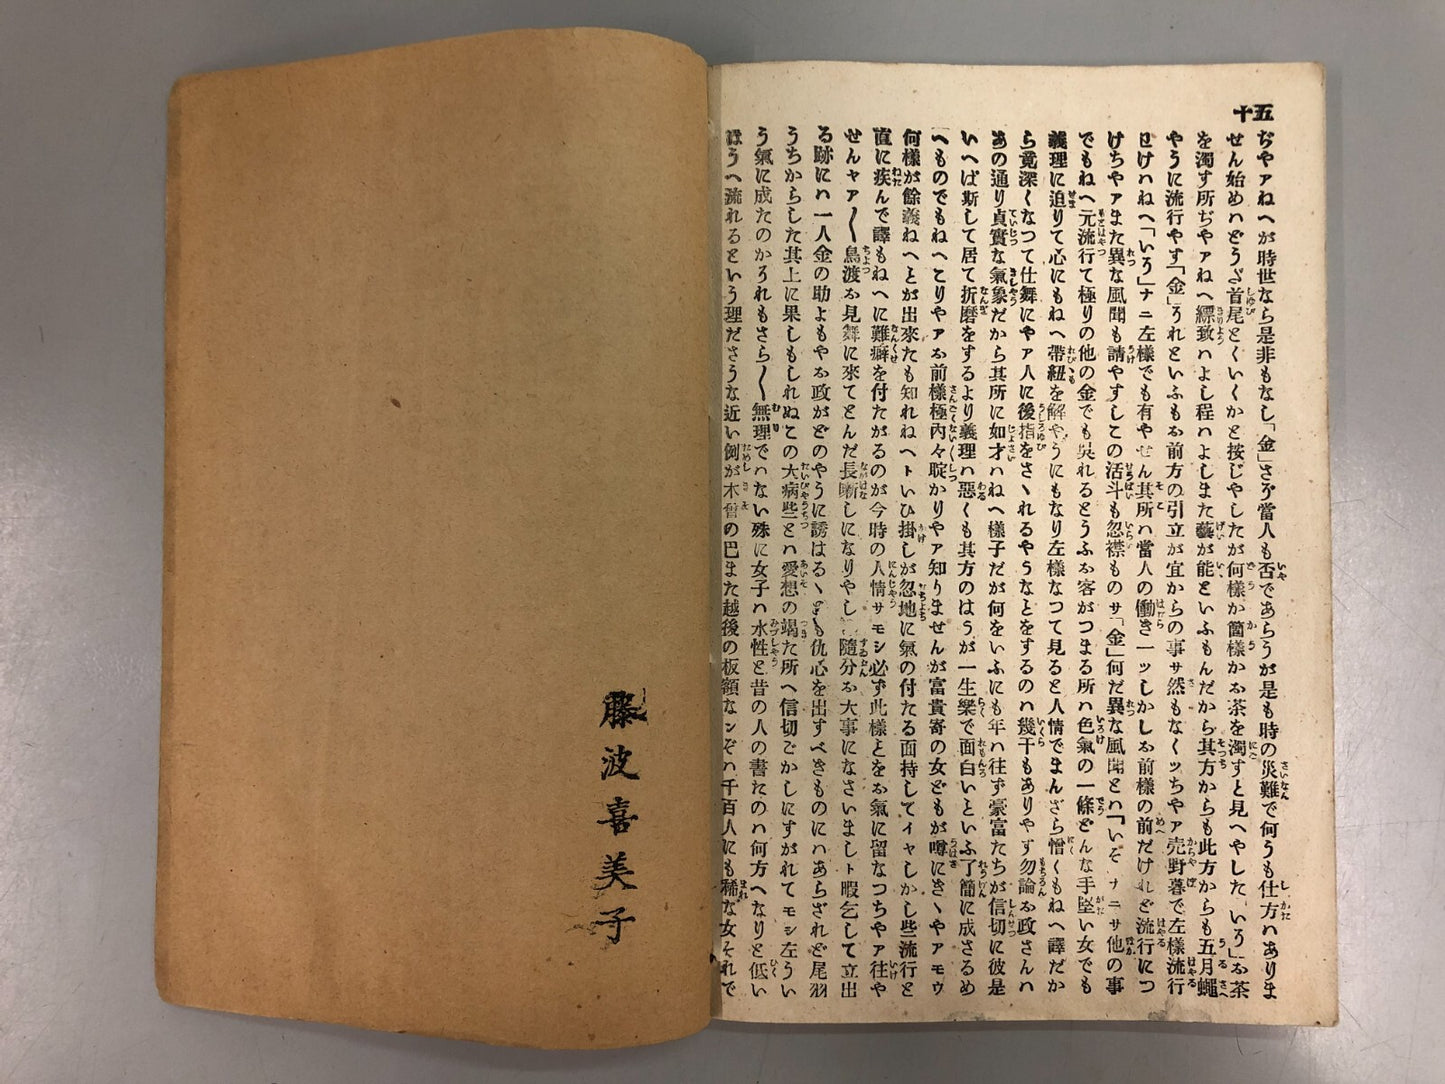 五十
ぢやァねへが時世なら是非もなし「金」さァ當人も否であらうが是も時の災難で何うも仕方ハありま
せん始めハどうざ首尾とくいくかと按じやしたが何樣か箇樣かお茶を濁すと見へやした「いろ」お茶
を濁す所ぢやァねへ縹致ハよし程ハよしまた藝が能といふもんだから其方からも此方からも五月蠅
やうに流行やす「金」うれといふもお前方の引立が宜からの事サ然もなくッちやァ売野暮で左樣流行
けハねへ「いろ」ナニ左樣でも有やせん其所ハ當人の働き一ッしかしお前樣の前だけれど流行につ
けちやァまた異な風聞も請やすしこの活斗も忽襟ものサ「金」何だ異な風聞とハ「いろ」ナニサ他の事
でもねへ元流行て極りの他の金でも呉れるとうふお客がつまる所ハ色氣の一條どんな手堅い女でも
義理に迫りて心にもねへ帶紐を解やうにもなり左樣なつて見ると人情でまんざら憎くもねへ譯だか
ら竟深くなつて仕舞にやァ人に後指をさゝれるやうなとをするのハ幾干もありやす勿論お政さんハ
あの通り貞實な氣象だから其所に如才ハねへ樣子だが何をいふにも年ハ往ず豪富たちが信切に彼是
いへば斯して居て折磨をするより義理ハ惡くも其方のはうが一生樂で面白いといふ了簡に成さるめ
へものでもねへこりやァお前樣極內々聢かりやァ知りませんが富貴寄の女どもが噂にきゝやァモウ
何樣が餘義ねへとが出來たも知れねへトいひ掛しが忽地に氣の付たる面持してイヤしかし些流行と
直に疾んで譯もねへに難癖を付たがるのが今時の人情サモシ必ず此樣とをお氣に留なつちやァ往や
せんャア〳〵鳥渡お見舞に來てとんだ長噺しになりやし 隨分お大事になさいましト暇乞して立出
る跡にハ一人金の助よもやお政がどのやうに誘はるゝとも仇心を出すべきものにハあらざれど尾羽
うちからした其上に果しもしれぬこの大病些とハ愛想の竭た所へ信切ごかしにすがれてモシ左うい
う氣に成たのかうれもさら〳〵無理でハない殊に女子ハ水性と昔の人の書たのハ何方へなりと低い
はうへ流れるという理ださうな近い例が木曾の巴また越後の板額なンぞハ千百人にも稀な女それで
藤波喜美子